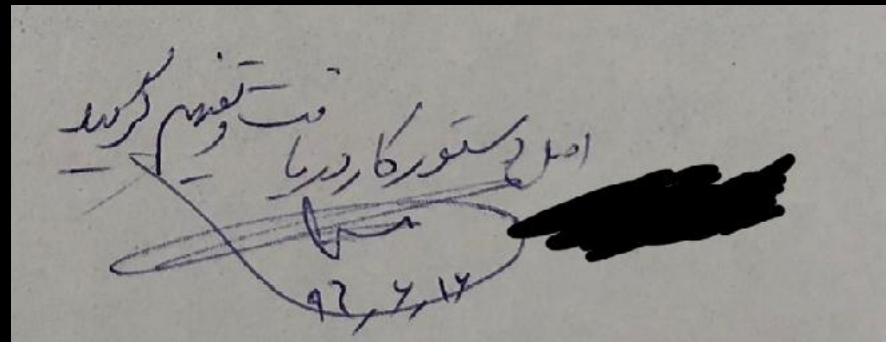 اصل دستور کار دریافت و تفهیم گردید
۹۶,۶,۱۶